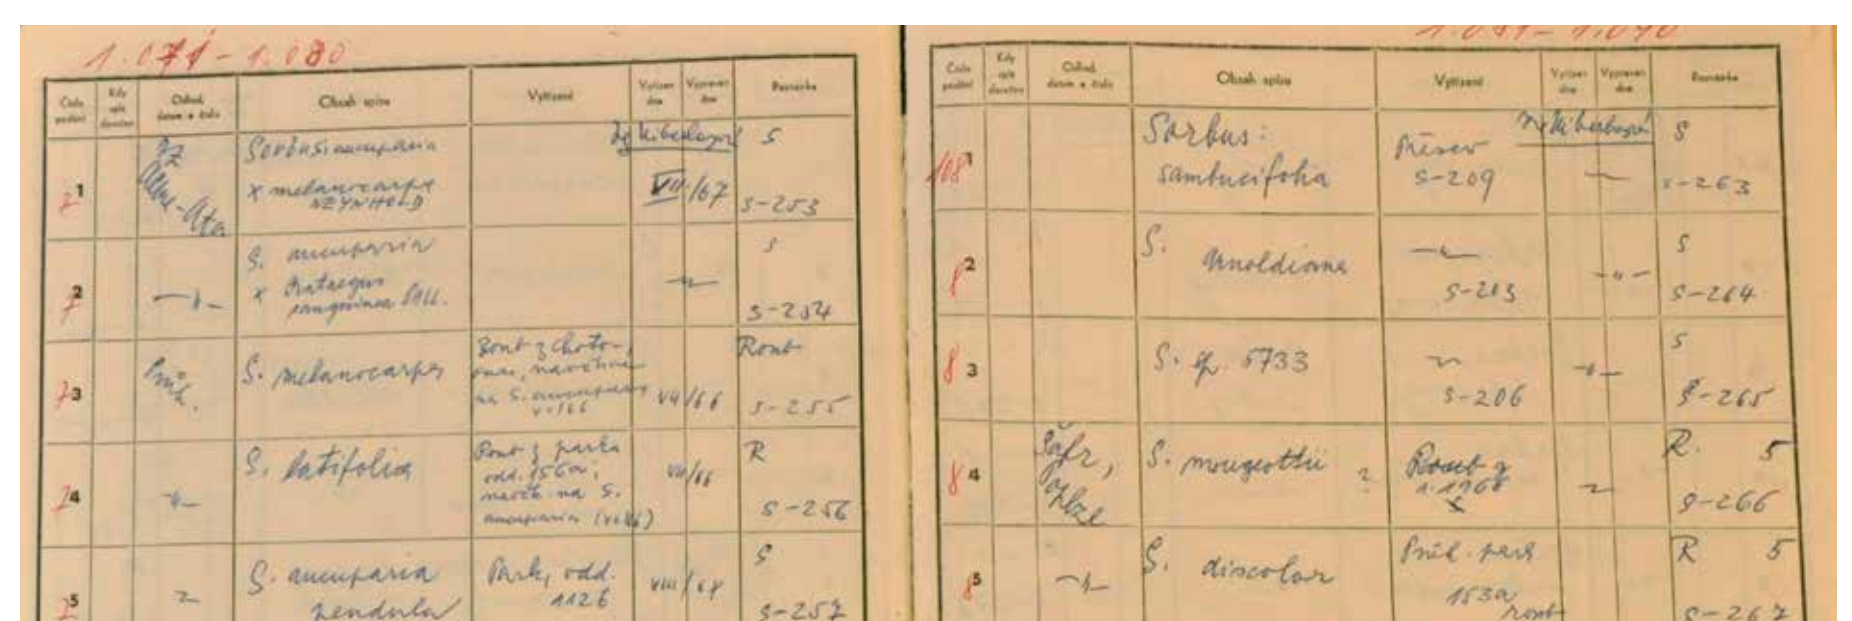 1.071 - 1.080
Číslo podání
Kdy spis doručen
Odesíl. datum a číslo
Obsah spisu
Vyřízení
Vyřízen dne
Vypraven dne
Poznámka
71
Alma-Ata
Sorbus: aucuparia
x melanocarpa
VII/67
S
S-253
72
S. aucuparia
x Crataegus
sanguinea PALL.
S
S-254
73
Průh.
S. melanocarpa
na S. aucuparia
VII/66
Roub
S-255
74
S. latifolia
Roub z parku
odd. 156a;
na S.
aucuparia
VII/66
R
S-256
75
S. aucuparia
pendula
Park, odd.
112b
VIII/67
S
S-257
1.081 - 1.090
Číslo podání
Kdy spis doručen
Odesíl. datum a číslo
Obsah spisu
Vyřízení
Vyřízen dne
Vypraven dne
Poznámka
1081
Sorbus:
sambucifolia
Přesev
S-209
S
S-263
82
S. Arnoldiana
S-213
S
S-264
83
S. sp. 5733
S-206
S
S-265
84
S. mougeottii ?
Roub z
R. 5
S-266
85
S. discolor
Průh. park
153a
roub
R 5
S-267